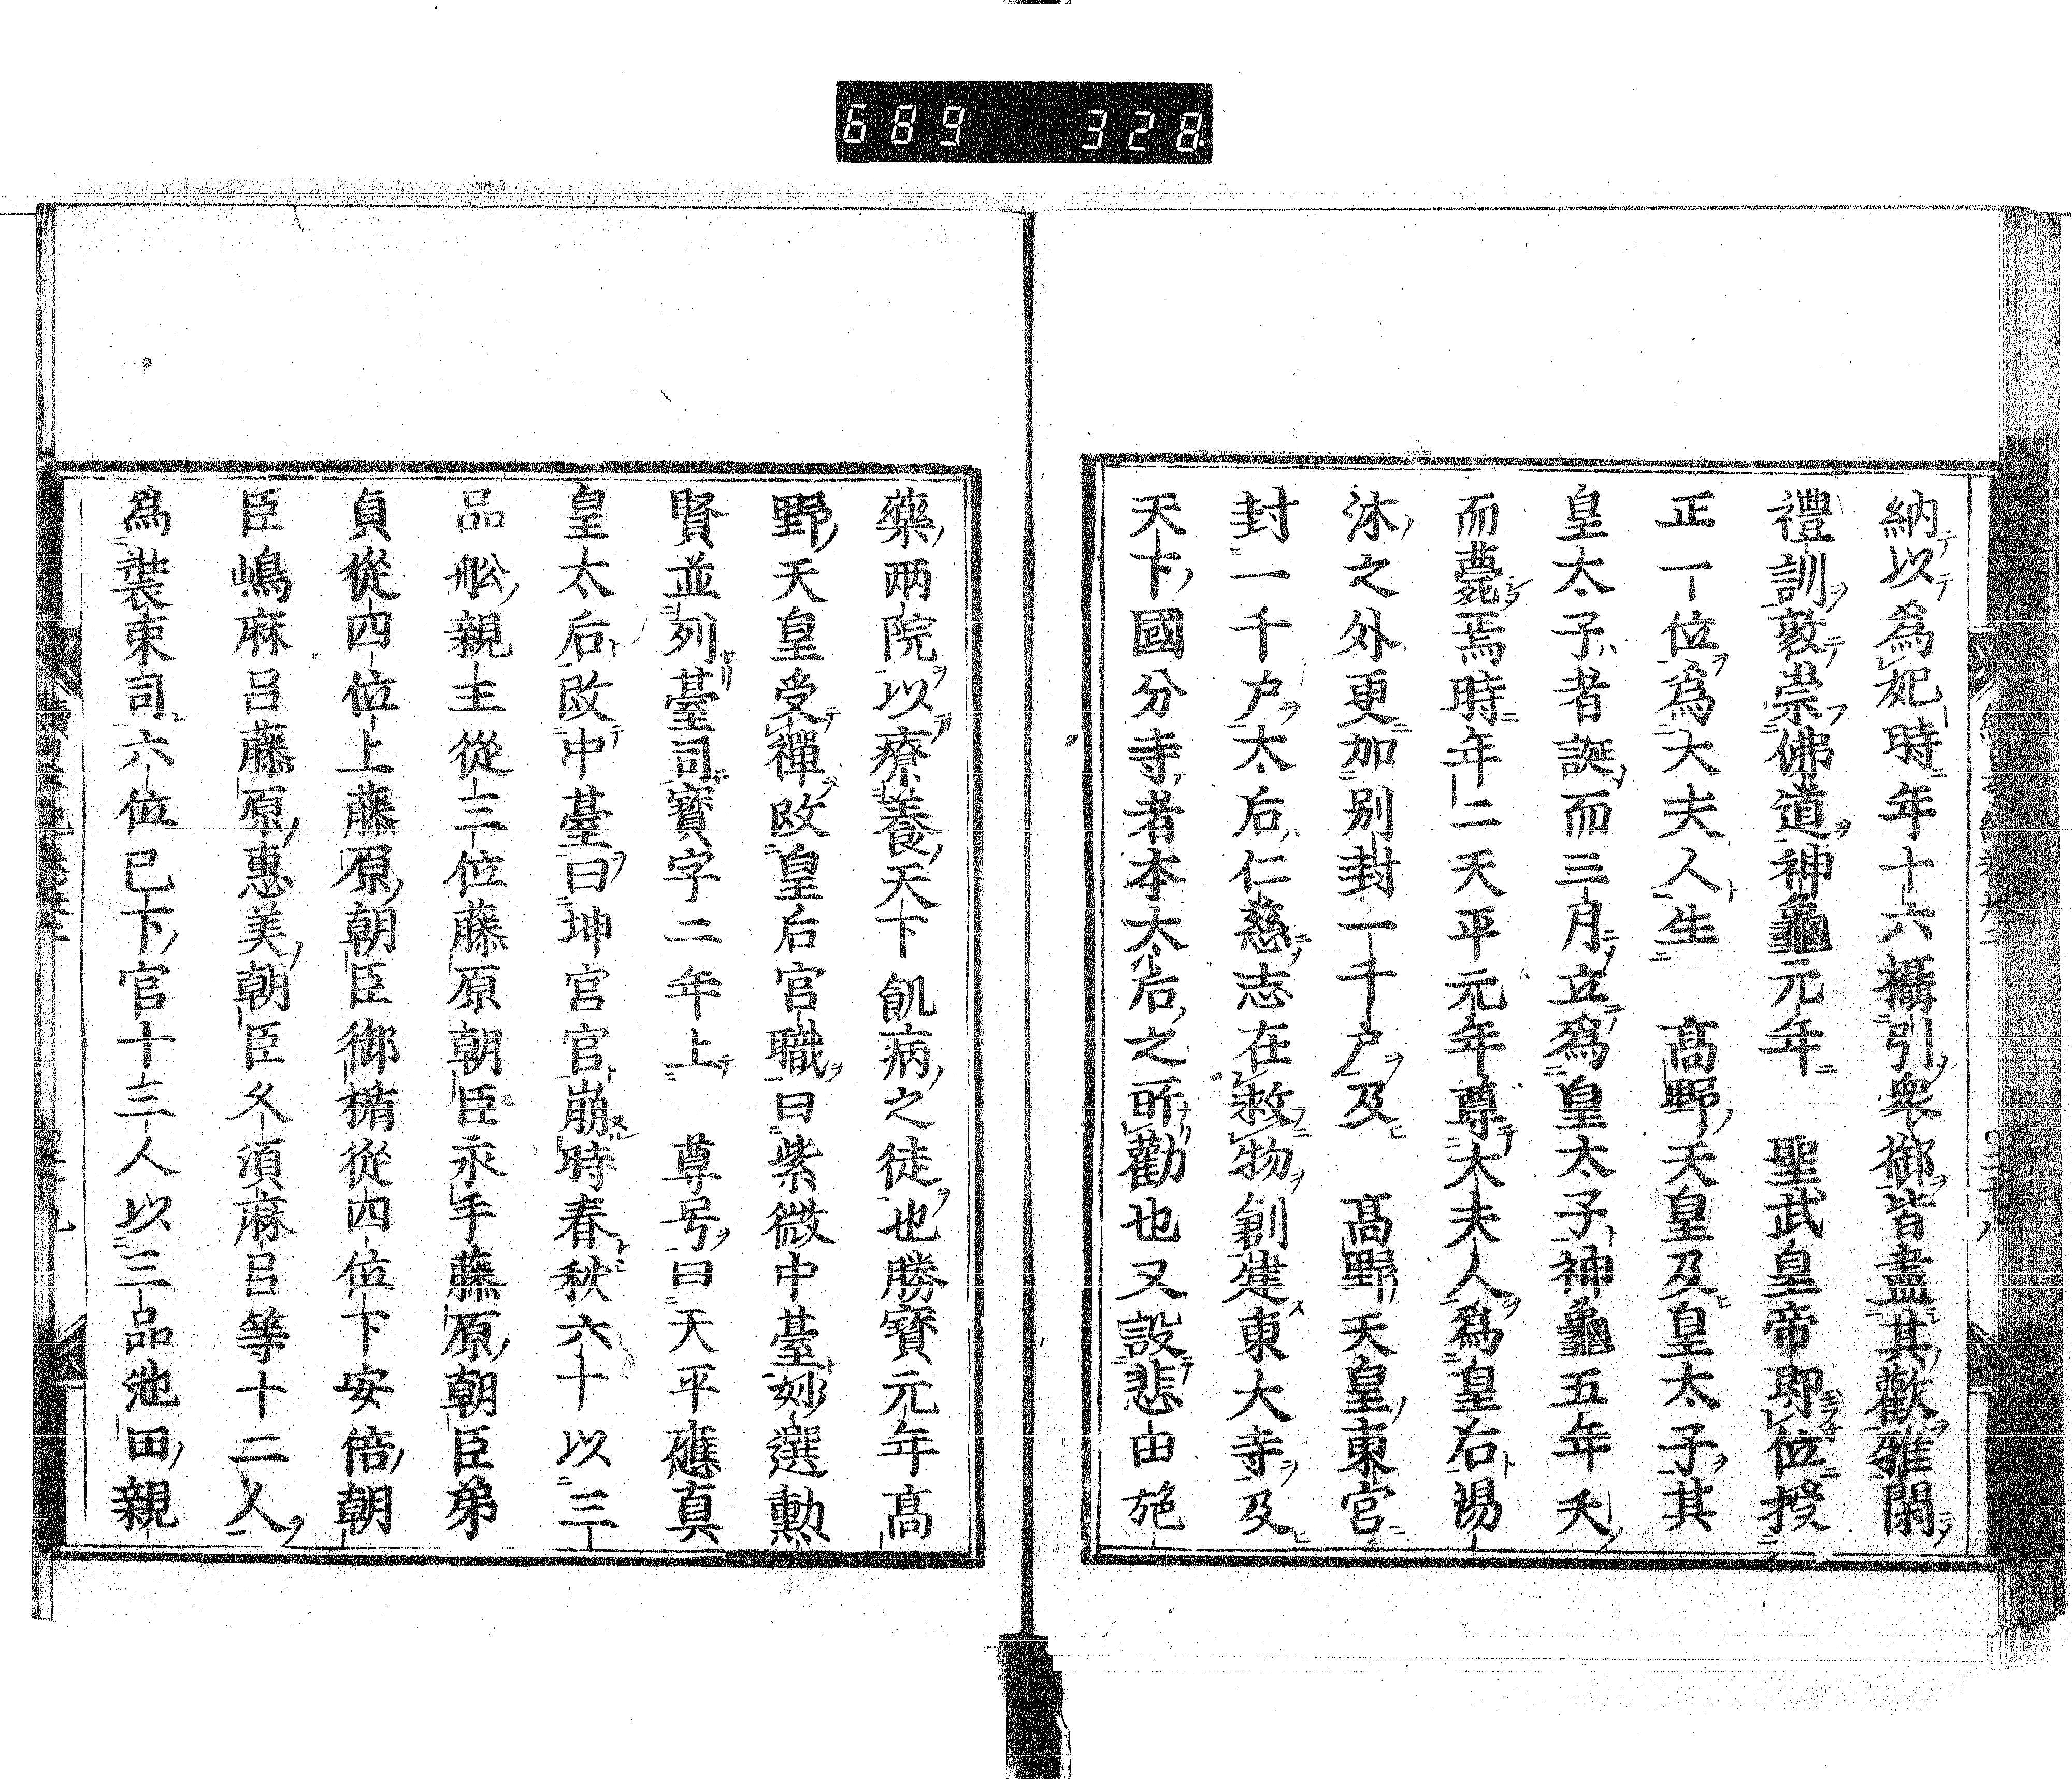 689 328
納以爲妃時年十六攝引衆御皆盡其歡雅閑
禮訓敦崇佛道神龜元年　聖武皇帝即位授
正一位爲大夫人生　髙野天皇及皇太子其
皇太子者誕而三月立爲皇太子神龜五年夭
而薨焉時年二天平元年尊大夫人爲皇后湯
沐之外更加別封一千户及　髙野天皇東宮
封一千户太后仁慈志在救物創建東大寺及
天下國分寺者本太后之所勸也又設悲田施
藥兩院以療養天下飢病之徒也勝寶元年髙
野天皇受禪改皇后宮職曰紫微中臺妙選勲
賢並列臺司寶字二年上　尊号曰天平應真
皇太后改中臺曰坤宮官崩時春秋六十以三
品舩親王從三位藤原朝臣永手藤原朝臣弟
貞從四位上藤原朝臣御楯從四位下安倍朝
臣嶋麻呂藤原惠美朝臣久須麻呂等十二人
爲裝束司六位已下官十三人以三品池田親